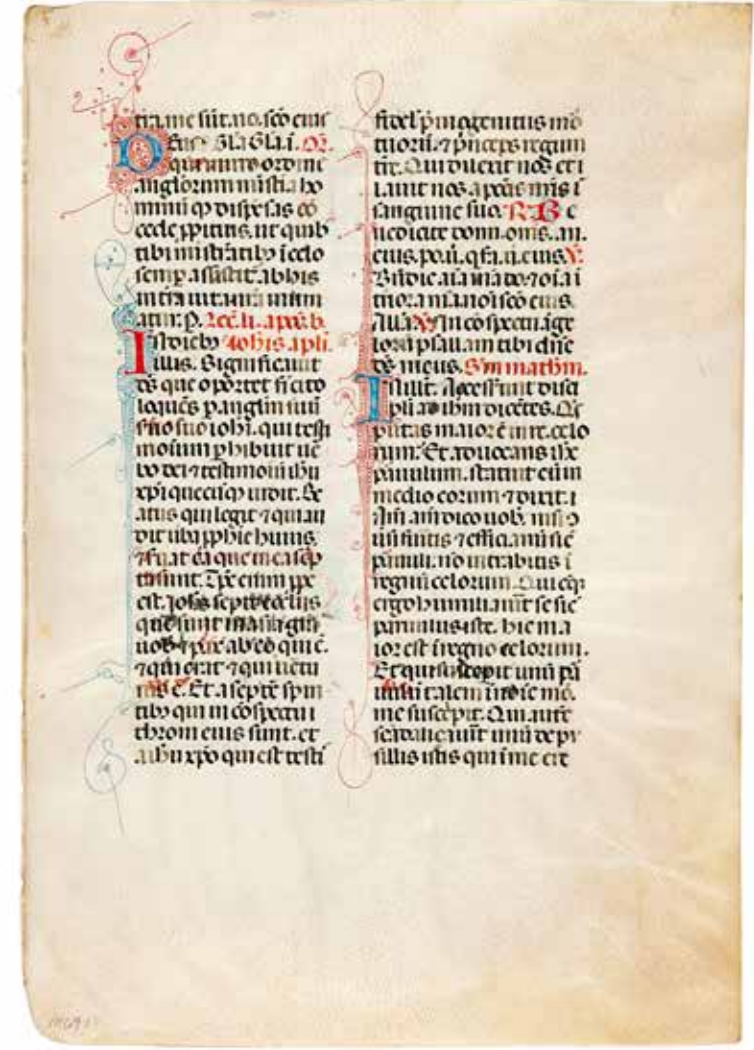 tra me sūt. no. scō eius
Deus Gla Gla. i. Or.
qui miro ordine
anglorum misti. a ho
minū qȝ dispēsas cō
cede ꝓpitius. ut quibȝ
tibi mīstrātibȝ ī celo
semꝑ assistit. ab his
in tr̄a uita nr̄a muni
atur. P. Lec̄. li. apoc̄. b.
In diebȝ Iohis apli.
illis. Significauit
ds̄ que oportet fi cito
loquēs ꝑ anglm suū
suo iohī. qui testi
moīum ꝑhibuit uē
bo dei ⁊ testimoiū ihu
xp̄i quecūqȝ uidit. Be
atus qui legit ⁊ qui au
dit uba ꝓphīe huius.
⁊ ẜuat ea que in ea scͥp
ta sunt. Tp̄s enim ꝓpe
est. Johs septē ecc̄liis
que sunt in asia gr̄a
uob ⁊ pax ab eo qui ē.
⁊ qui erat ⁊ qui uētu
rus ē. Et a septē spiri
tibȝ qui in cōspectu
throni eius sunt. et
a ihu xp̄o qui est testi
fidel' pͥmogenitus mō
tuorū. ⁊ pͥnceps regum
tr̄e. Qui dilexit nos et l
auit nos a pccīs nr̄is ī
sanguine suo. R. Be
nedicite dom̄. om̄s. an.
eius. po. ū. q. fa. u. eius. V.
Bn̄dic aīa mea do. ⁊ oīa ī
teriora mea noī scō eius.
Alla. V. In cōspectu āge
lorū psallam tibi dn̄e
ds̄ meus. Sm̄ mathm̄.
In illo. Accesserunt disci
puli ad ihm dicētes. Qs
putas maior ē in r. celo
rum. Et aduocans ih̄s
paruulum. statuit eū in
medio eorum ⁊ dixit.
Am̄ amē dico uob. nisi ↄ
uſi fuitis ⁊ efficiamī sīc
paruuli. nō intrabitis ī
regnū celorum. Quicūqȝ
ergo humiliauit se sic
paruulus iste. hic ma
ior est ī regno celorum.
Et qui susceperit unū pa
ruulū talem ī noīe mō.
me suscepit. Qui autē
scādalicauit unū de pu
sillis istis qui ī me cre